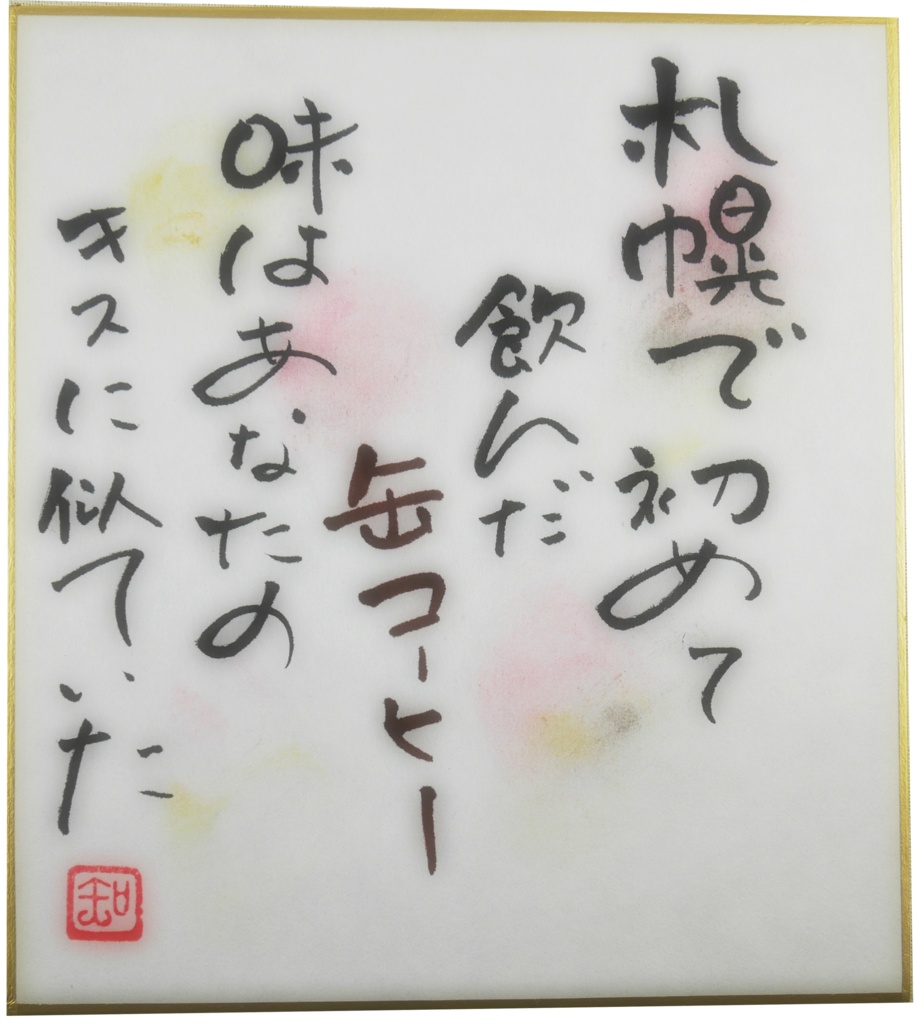 札幌で初めて
飲んだ
缶コーヒー
味はあなたの
キスに似ていた
知